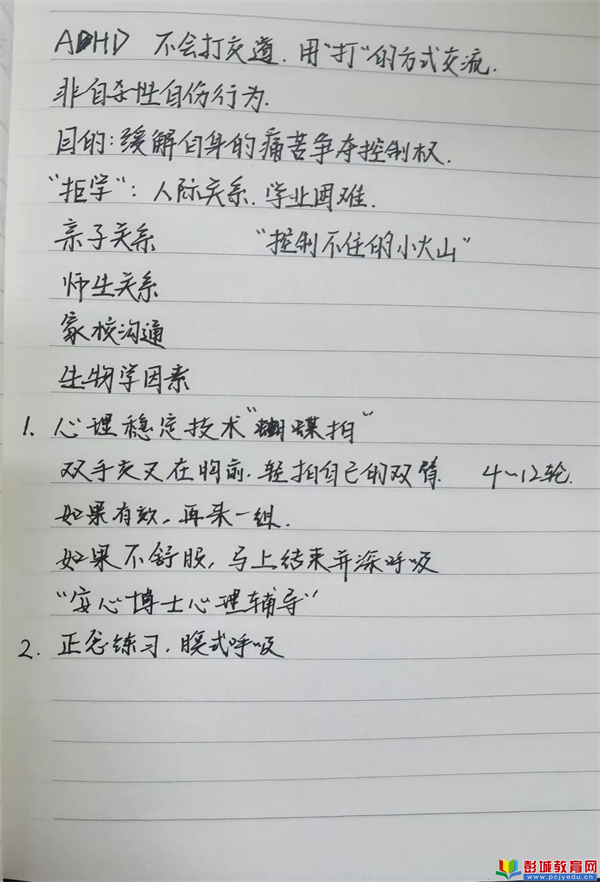 ADHD 不会打交道.用"打"的方式交流.
非自杀性自伤行为.
目的:缓解自身的痛苦争夺控制权.
"拒学":人际关系.学业困难.
亲子关系 "控制不住的小火山"
师生关系
家校沟通
生物学因素
1. 心理稳定技术"蝴蝶拍"
双手交叉在胸前.轻拍自己的双臂. 4~12轮.
如果有效,再来一组.
如果不舒服,马上结束并深呼吸
"安心博士心理辅导"
2. 正念练习.腹式呼吸
彭城教育网
www.pcjyedu.com